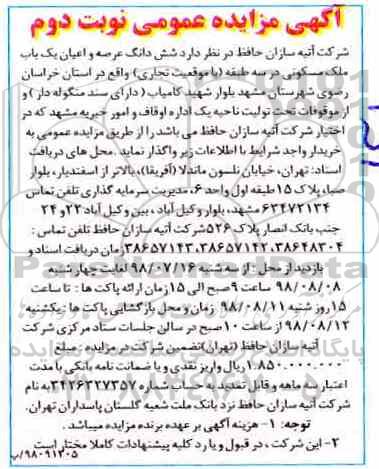 آگهی مزایده عمومی نوبت دوم
شرکت آتیه سازان حافظ در نظر دارد شش دانگ عرصه و اعیان یک باب
ملک مسکونی در سه طبقه (با موقعیت تجاری) واقع در استان خراسان
رضوی شهرستان مشهد بلوار شهید کامیاب (دارای سند منگوله دار) و
از موقوفات تحت تولیت ناحیه یک اداره اوقاف و امور خیریه مشهد که در
اختیار شرکت آتیه سازان حافظ می باشد را از طریق مزایده عمومی به
خریدار واجد شرایط با اطلاعات زیر واگذار نماید. محل های دریافت
اسناد: تهران، خیابان نلسون ماندلا (آفریقا)، بالاتر از اسفندیار، بلوار
صبا، پلاک ۱۵ طبقه اول واحد ۶، مدیریت سرمایه گذاری تلفن تماس
۶۳۴۷۲۱۳۴ مشهد، بلوار وکیل آباد، بین وکیل آباد ۲۲ و ۲۴
جنب بانک انصار پلاک ۵۲۶ شرکت آتیه سازان حافظ تلفن تماس:
۳۸۶۴۸۳۰۴، ۳۸۶۵۷۱۴۲، ۳۸۶۵۷۱۴۳ زمان دریافت اسناد و
بازدید از محل: از سه شنبه ۹۸/۰۷/۱۶ لغایت چهار شنبه
۹۸/۰۸/۰۸ ساعت ۹ صبح الی ۱۵ زمان ارائه پاکت ها: تا ساعت
۱۵ روز شنبه ۹۸/۰۸/۱۱ زمان و محل بازگشایی پاکت ها: یکشنبه
۹۸/۰۸/۱۲ از ساعت ۱۰ صبح در سالن جلسات ستاد مرکزی شرکت
آتیه سازان حافظ (تهران) تضمین شرکت در مزایده: مبلغ
۱.۸۵۰.۰۰۰.۰۰۰ ریال واریز نقدی و یا ضمانت نامه بانکی با مدت
اعتبار سه ماهه و قابل تمدید به حساب شماره ۳۴۲۶۳۲۷۳۵۷ به نام
شرکت آتیه سازان حافظ نزد بانک ملت شعبه گلستان پاسداران تهران.
توجه: ۱- هزینه آگهی بر عهده برنده مزایده میباشد.
۲- این شرکت، در قبول و یا رد کلیه پیشنهادات کاملا مختار است
۹۸۰۹۱۲۰۵/پ